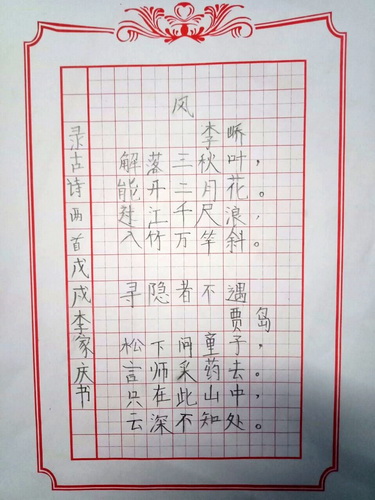 风
李峤
解落三秋叶，
能开二月花。
过江千尺浪，
入竹万竿斜。
寻隐者不遇
贾岛
松下问童子，
言师采药去。
只在此山中，
云深不知处。
录古诗两首戊戌李家庆书